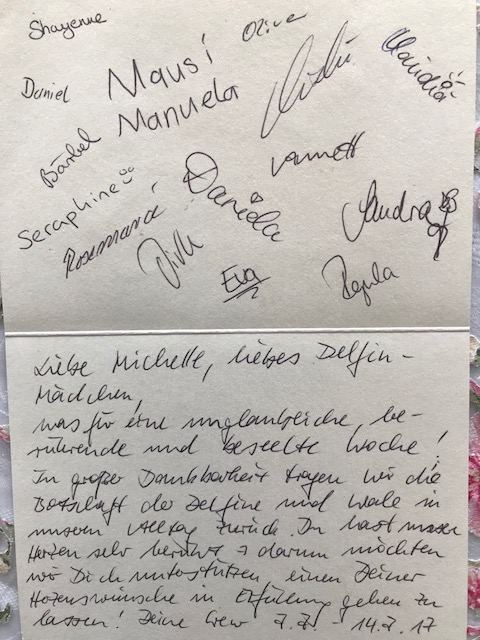 Shayenne
Olive
Claudia
Daniel
Mausi
Manuela
Bärbel
Seraphine
Daniela
Sandra
Rosemarie
Eva
Regula
Liebe Michelle, liebes Delfin-
Mädchen,
was für eine unglaubliche, be-
rührende und beseelte Woche!
In großer Dankbarkeit tragen wir die
Botschaft der Delfine und Wale in
unseren Alltag zurück. Du hast unser
Herzen sehr berührt & darum möchten
wir Dich unterstützen, einen Deiner
Herzenswünsche in Erfüllung gehen zu
lassen! Deine Crew 7.7. - 14.7.17